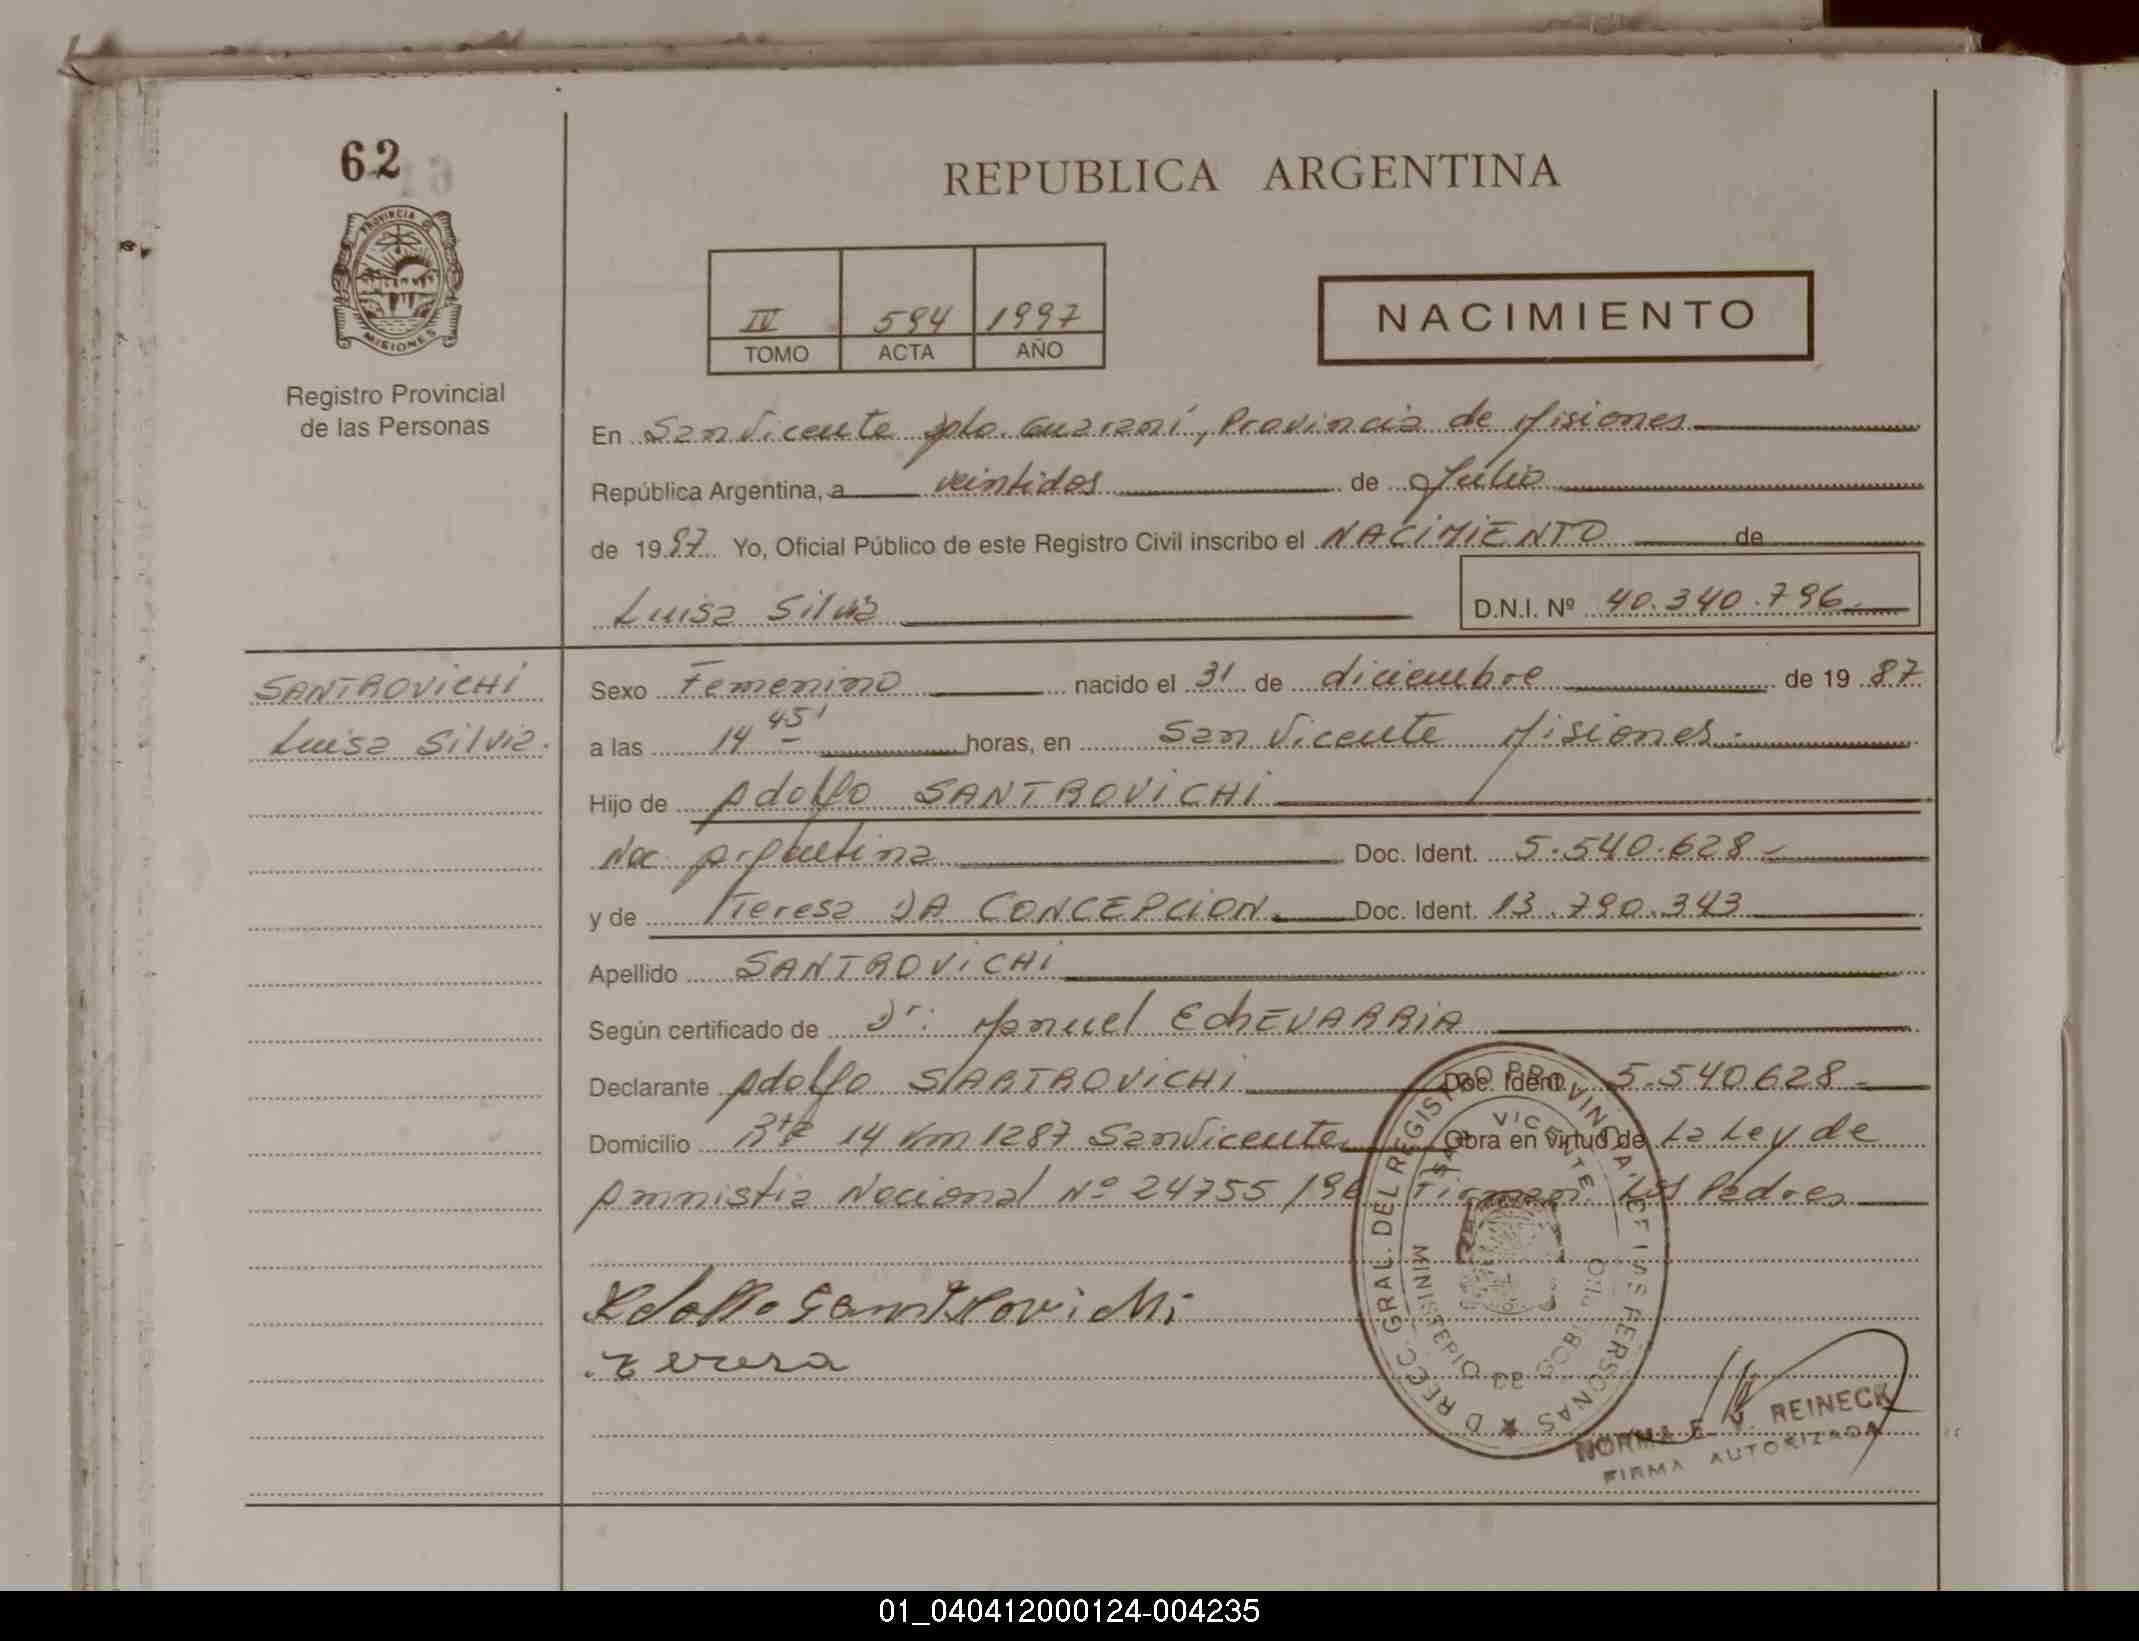 62
REPUBLICA ARGENTINA
PROVINCIA DE
MISIONES
IV 594 1997
TOMO ACTA AÑO
NACIMIENTO
Registro Provincial
de las Personas
En San Vicente Dpto. Guaraní, Provincia de Misiones
República Argentina, a veintidos de Julio
de 1997 Yo, Oficial Público de este Registro Civil inscribo el NACIMIENTO de
Luisa Silvia D.N.I. Nº 40.340.796.
SANTROVICHI
Luisa Silvia.
Sexo Femenino nacido el 31 de diciembre de 19 87
a las 14 45' horas, en San Vicente Misiones.
Hijo de Adolfo SANTROVICHI
Nac. Argentina Doc. Ident. 5.540.628
y de Teresa DA CONCEPCION Doc. Ident. 13.790.343
Apellido SANTROVICHI
Según certificado de Dr: Manuel EchEVARRIA
Declarante Adolfo SARTROVICHI Doc. Ident. 5.540628
Domicilio Rta 14 Km 1287 San Vicente Obra en virtud de La Ley de
Amnistia Nacional Nº 24755/96 Firman Los Padres
Adolfo Santrovichi
Teresa
DIRECC. GRAL. DEL REGISTRO PROVINCIAL DE LAS PERSONAS
SAN VICENTE
MINISTERIO DE GOBIERNO
NORMA E. REINECK
FIRMA AUTORIZADA
01_040412000124-004235